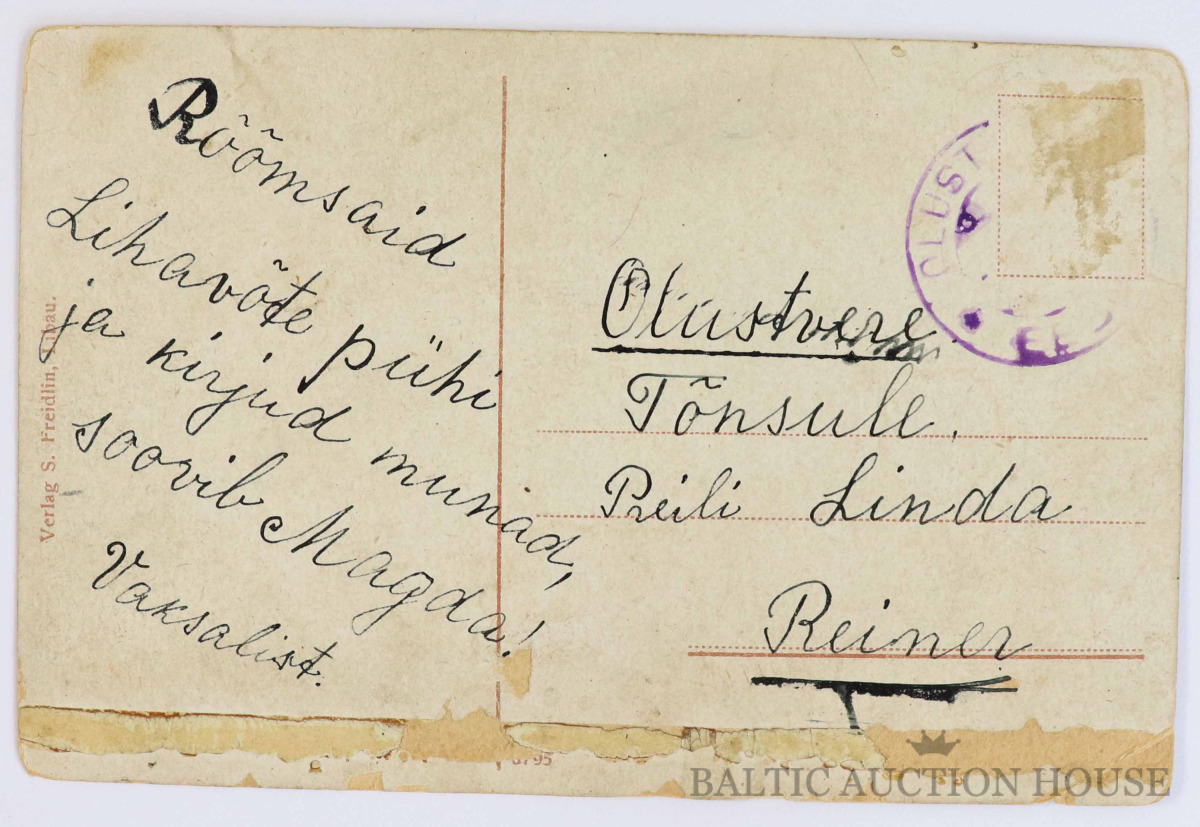 Rõõmsaid
Lihavõte pühi
ja kirjud munad,
soovib Magda!
Vaksalist.
Olustvere
Tõnsule.
Preili Linda
Reiner
Verlag S. Freidlin, Libau.
OLUST
6795
BALTIC AUCTION HOUSE